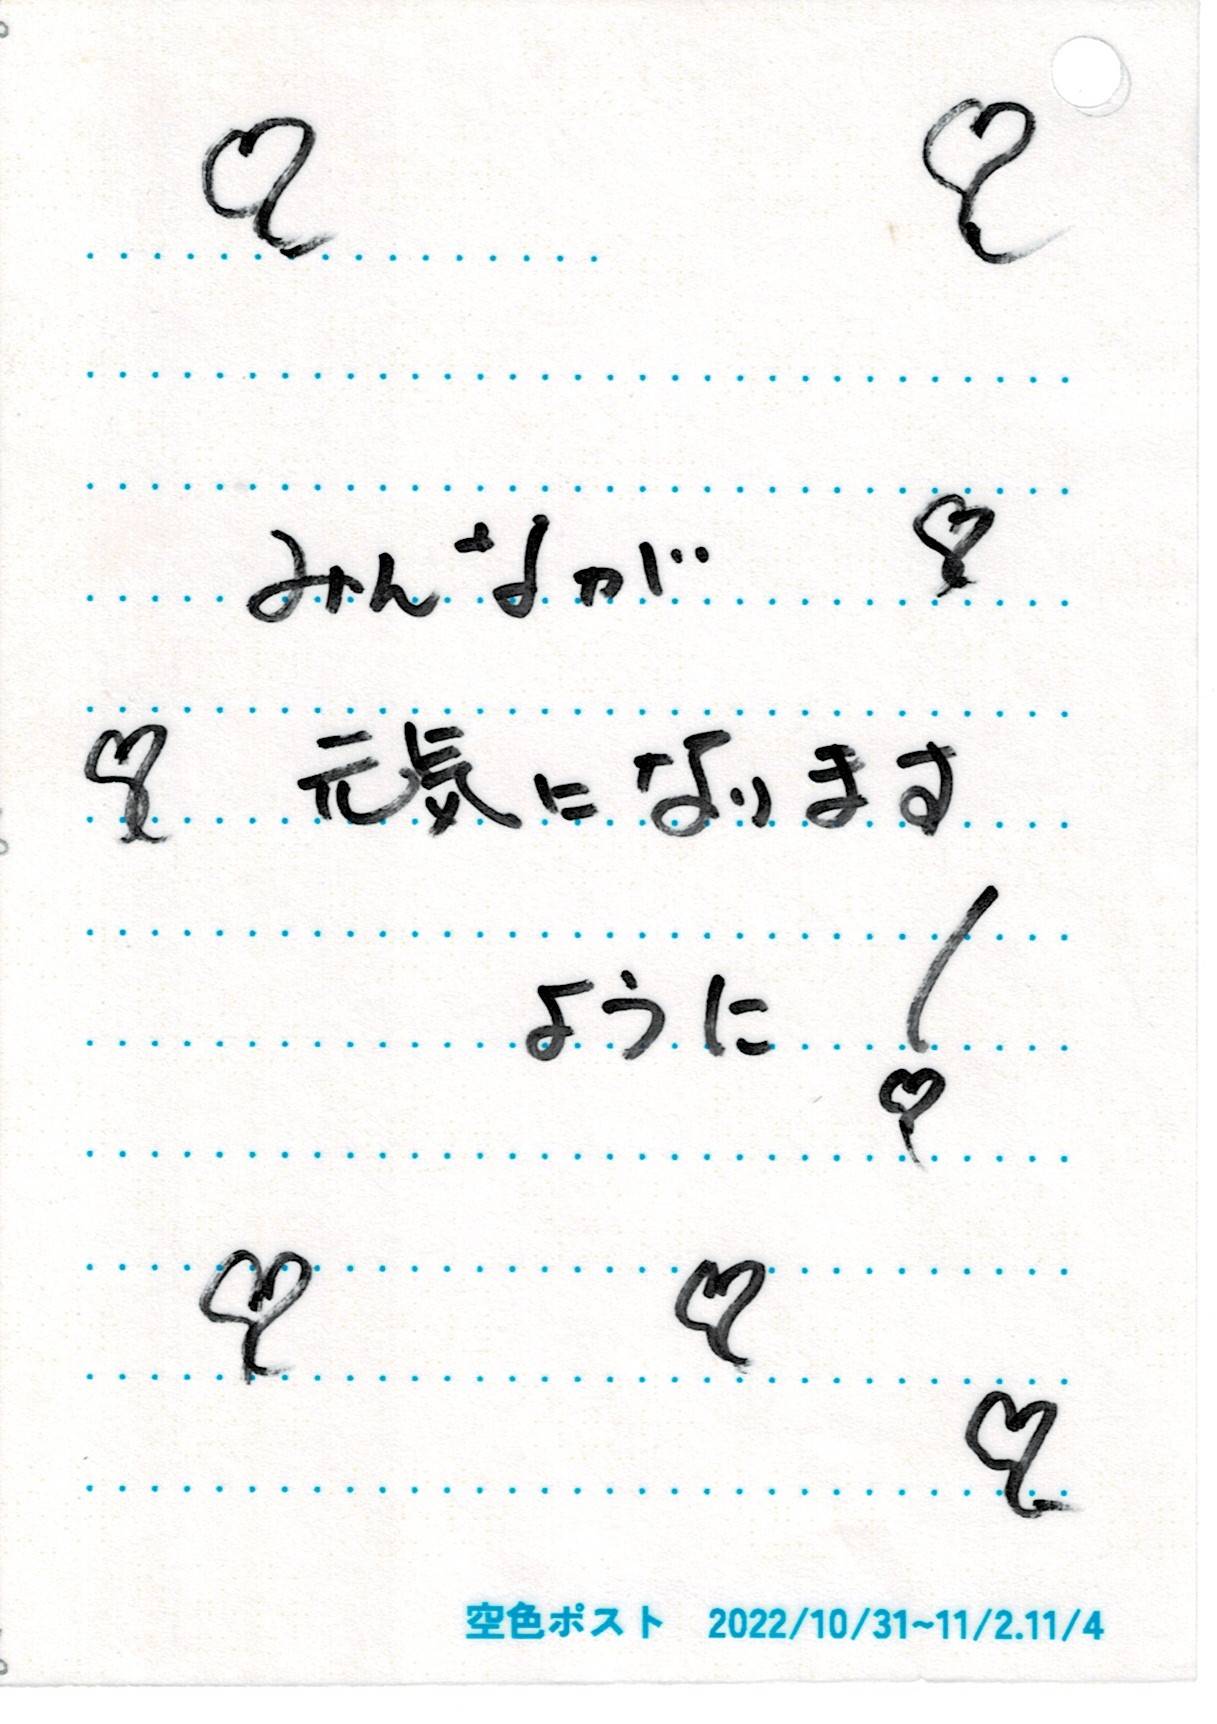 みんなが
元気になります
ように!
空色ポスト 2022/10/31~11/2.11/4